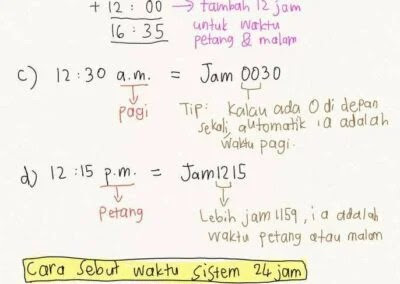 + 12 : 00 → tambah 12 jam
16 : 35 untuk waktu
petang & malam
c) 12 : 30 a.m. = Jam 0030
pagi
TIP: Kalau ada 0 di depan
sekali, automatik ia adalah
waktu pagi.
d) 12 : 15 p.m. = Jam 1215
petang
Lebih jam 1159, ia adalah
waktu petang atau malam
Cara sebut waktu sistem 24 jam